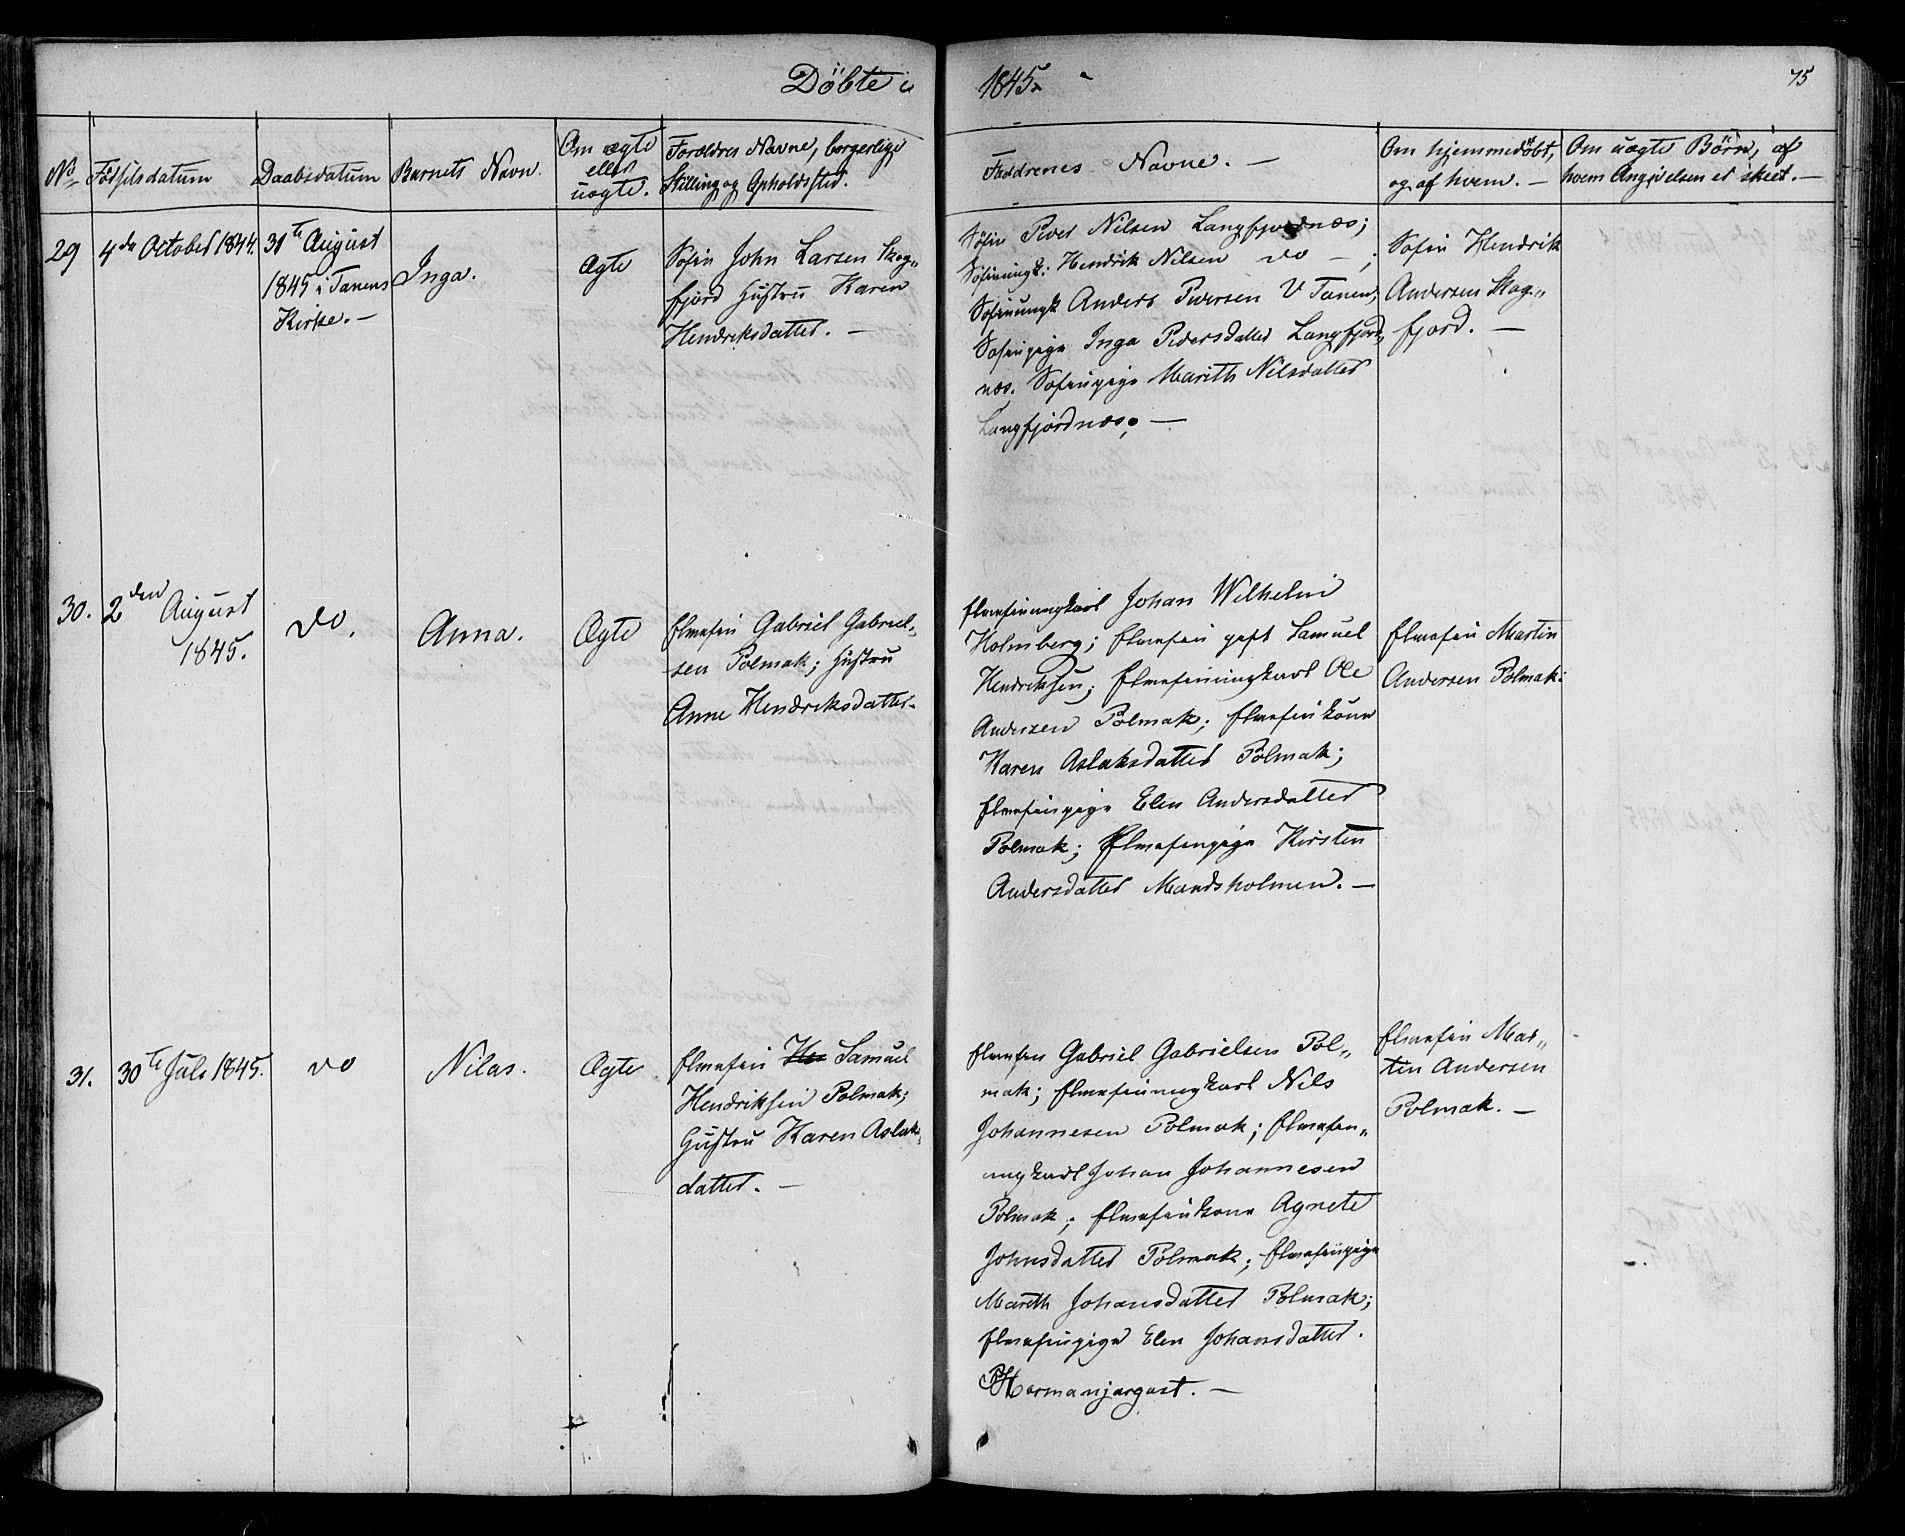 Döbte i 1845.
75
No
Födselsdatum
Daabsdatum
Barnets Navn.
Om ægte
eller
uægte.
Forældres Navne, borgerlige
Stilling og Opholdssted.
Faddrenes Navne. —
Om hjemmedöbt,
og af hvem. —
Om uægte Börn, af
hvem Angivelsen er skeet. —
29
4de October 1844.
31te August
1845 i Tanens
Kirke. —
Inga.
Ægte
Söfin John Larsen Skog„
fjord Hustru Karen
Hendriksdatter. —
Söfin Peder Nilsen Langfjordnæs;
Söfinungk: Hendrik Nilsen do —;
Söfinungk Anders Persen V Tanen;
Söfinpige Inga Pedersdatter Langfjord„
næs. Söfinpige Marith Nilsdatter
Langfjordnæs; —
Söfin Hendrik
Andersen Skog„
fjord. —
30.
2den August
1845.
do.
Anna.
Ægte
Elvefin Gabriel Gabriel„
sen Polmak; Hustru
Anne Hendriksdatter.
Elvefinungkarl Johan Wilhelm
Holmberg; Elvefin gift Samuel
Hendriksen; Elvefinungkarl Ole
Andersen Polmak; Elvefinkone
Karen Aslaksdatter Polmak;
Elvefinpige Elen Andersdatter
Polmak; Elvefinpige Kirsten
Andersdatter Mandsholmen. —
Elvefin Martin
Andersen Polmak:
31.
30te Juli 1845.
do
Nilas.
Ægte
Elvefin He Samuel
Hendriksen Polmak;
Hustru Karen Aslak„
datter. —
Elvefin Gabriel Gabrielsen Pol„
mak; Elvefinungkarl Nils
Johannesen Polmak; Elvefin„
ungkarl Johan Johannesen
Polmak; Elvefinkone Agnete
Johnsdatter Polmak; Elvefinpige
Marith Johansdatter Polmak;
Elvefinpige Elen Johansdatter.
Hormanjargast. —
Elvefin Mar„
tin Andersen
Polmak. —